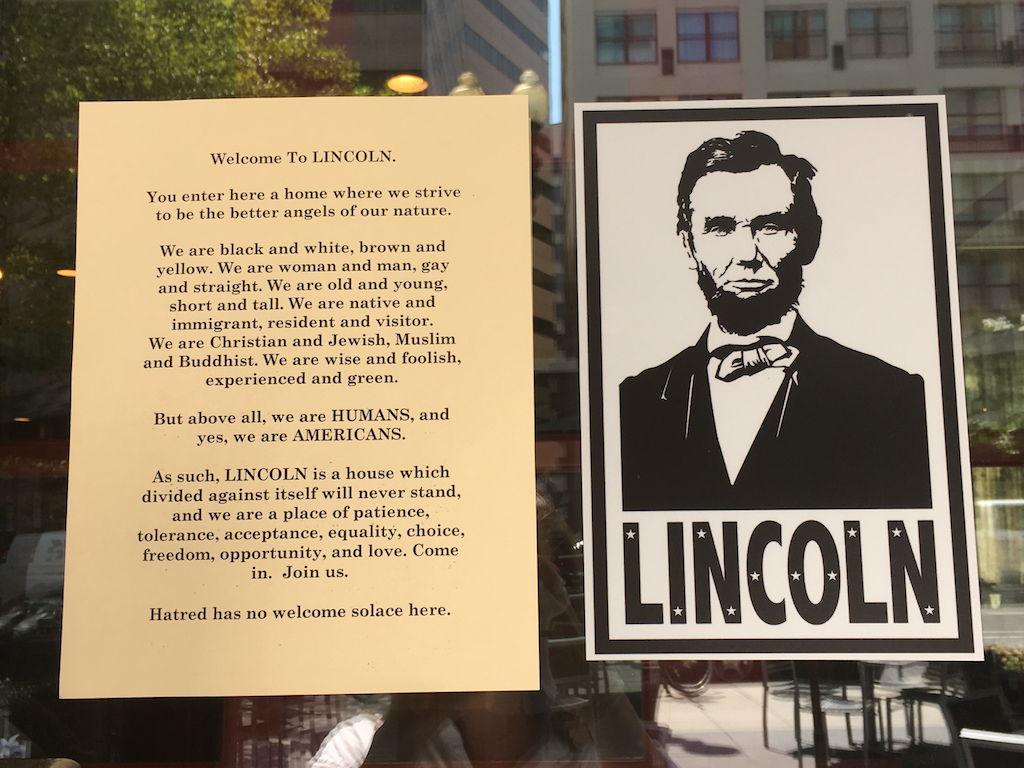 Welcome To LINCOLN.
You enter here a home where we strive
to be the better angels of our nature.
We are black and white, brown and
yellow. We are woman and man, gay
and straight. We are old and young,
short and tall. We are native and
immigrant, resident and visitor.
We are Christian and Jewish, Muslim
and Buddhist. We are wise and foolish,
experienced and green.
But above all, we are HUMANS, and
yes, we are AMERICANS.
As such, LINCOLN is a house which
divided against itself will never stand,
and we are a place of patience,
tolerance, acceptance, equality, choice,
freedom, opportunity, and love. Come
in. Join us.
Hatred has no welcome solace here.
LINCOLN